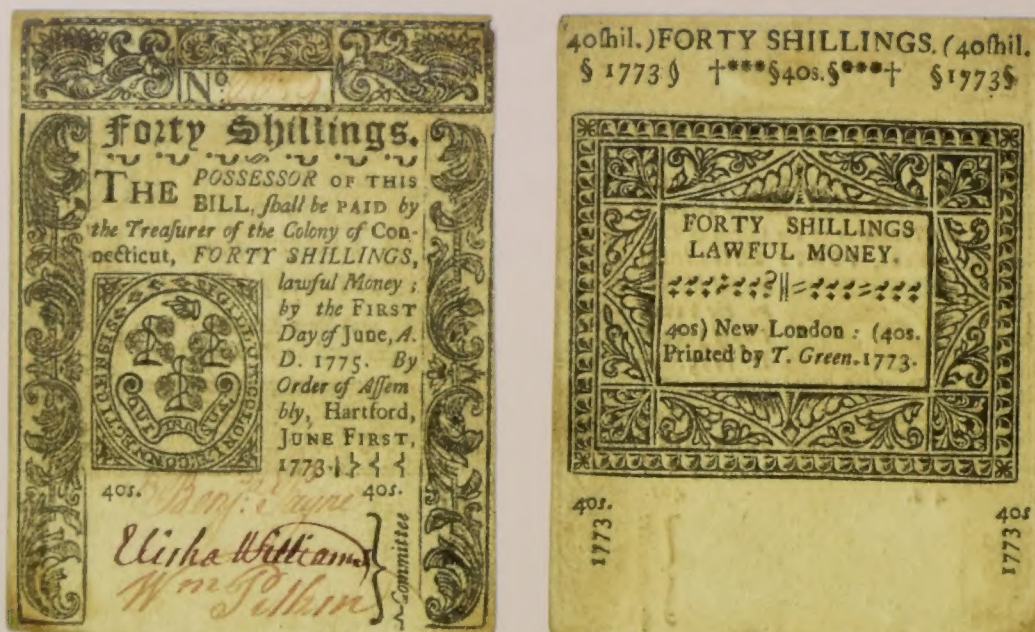 No.
Forty Shillings.
THE POSSESSOR OF THIS
BILL, ſhall be PAID by
the Treaſurer of the Colony of Con-
necticut, FORTY SHILLINGS,
lawful Money ;
by the FIRST
Day of June, A.
D. 1775. By
Order of Aſſem
bly, Hartford,
JUNE FIRST,
1773.
SIGILLUM COLON
CONNECTICENSIS
SUS TRA
40s. 40s.
Benj. Payne
Elisha Williams
Wm Pitkin
Committee
40ſhil.)FORTY SHILLINGS.(40ſhil.
§ 1773 § †***§40s.§***† §1773§
FORTY SHILLINGS
LAWFUL MONEY.
40s) New London : (40s.
Printed by T. Green. 1773.
40s.
1773
40s
1773